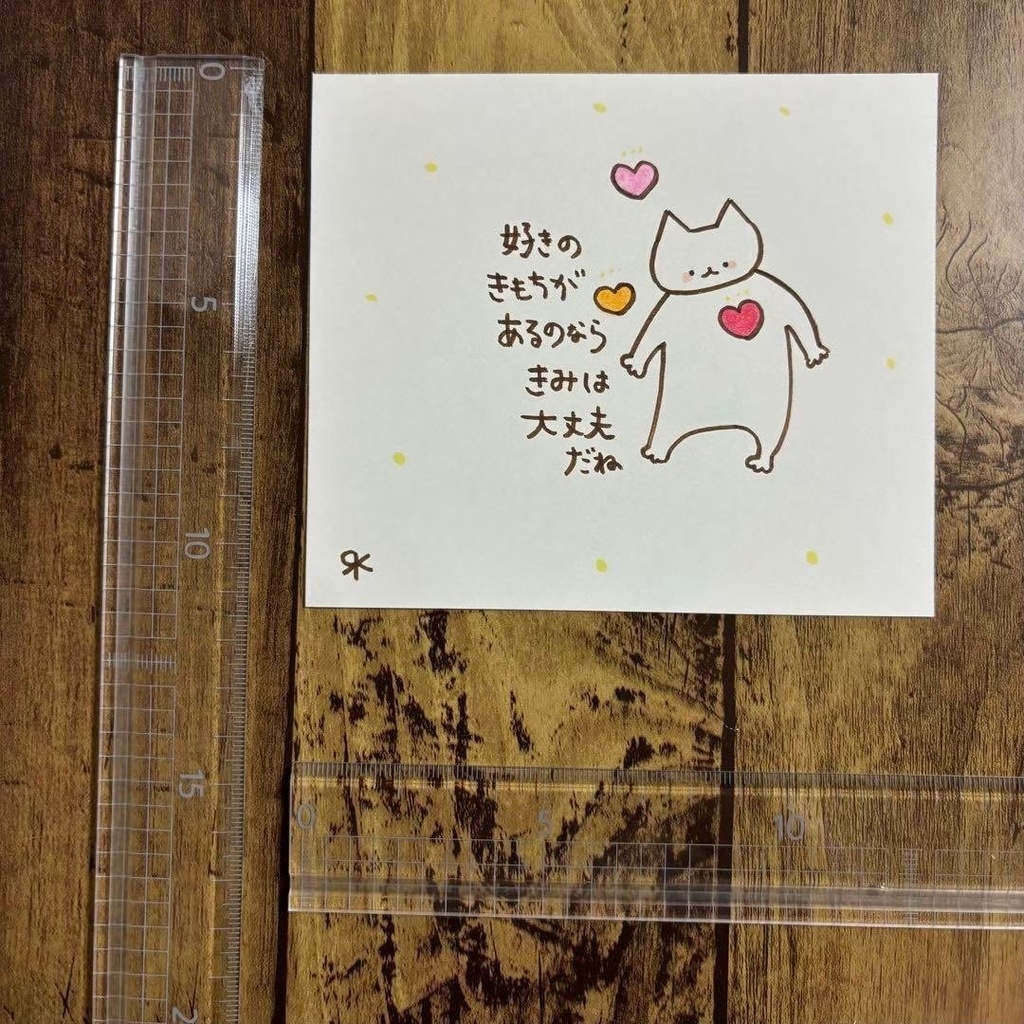 好きの
きもちが
あるのなら
きみは
大丈夫
だね
0
5
10
15
0
5
10